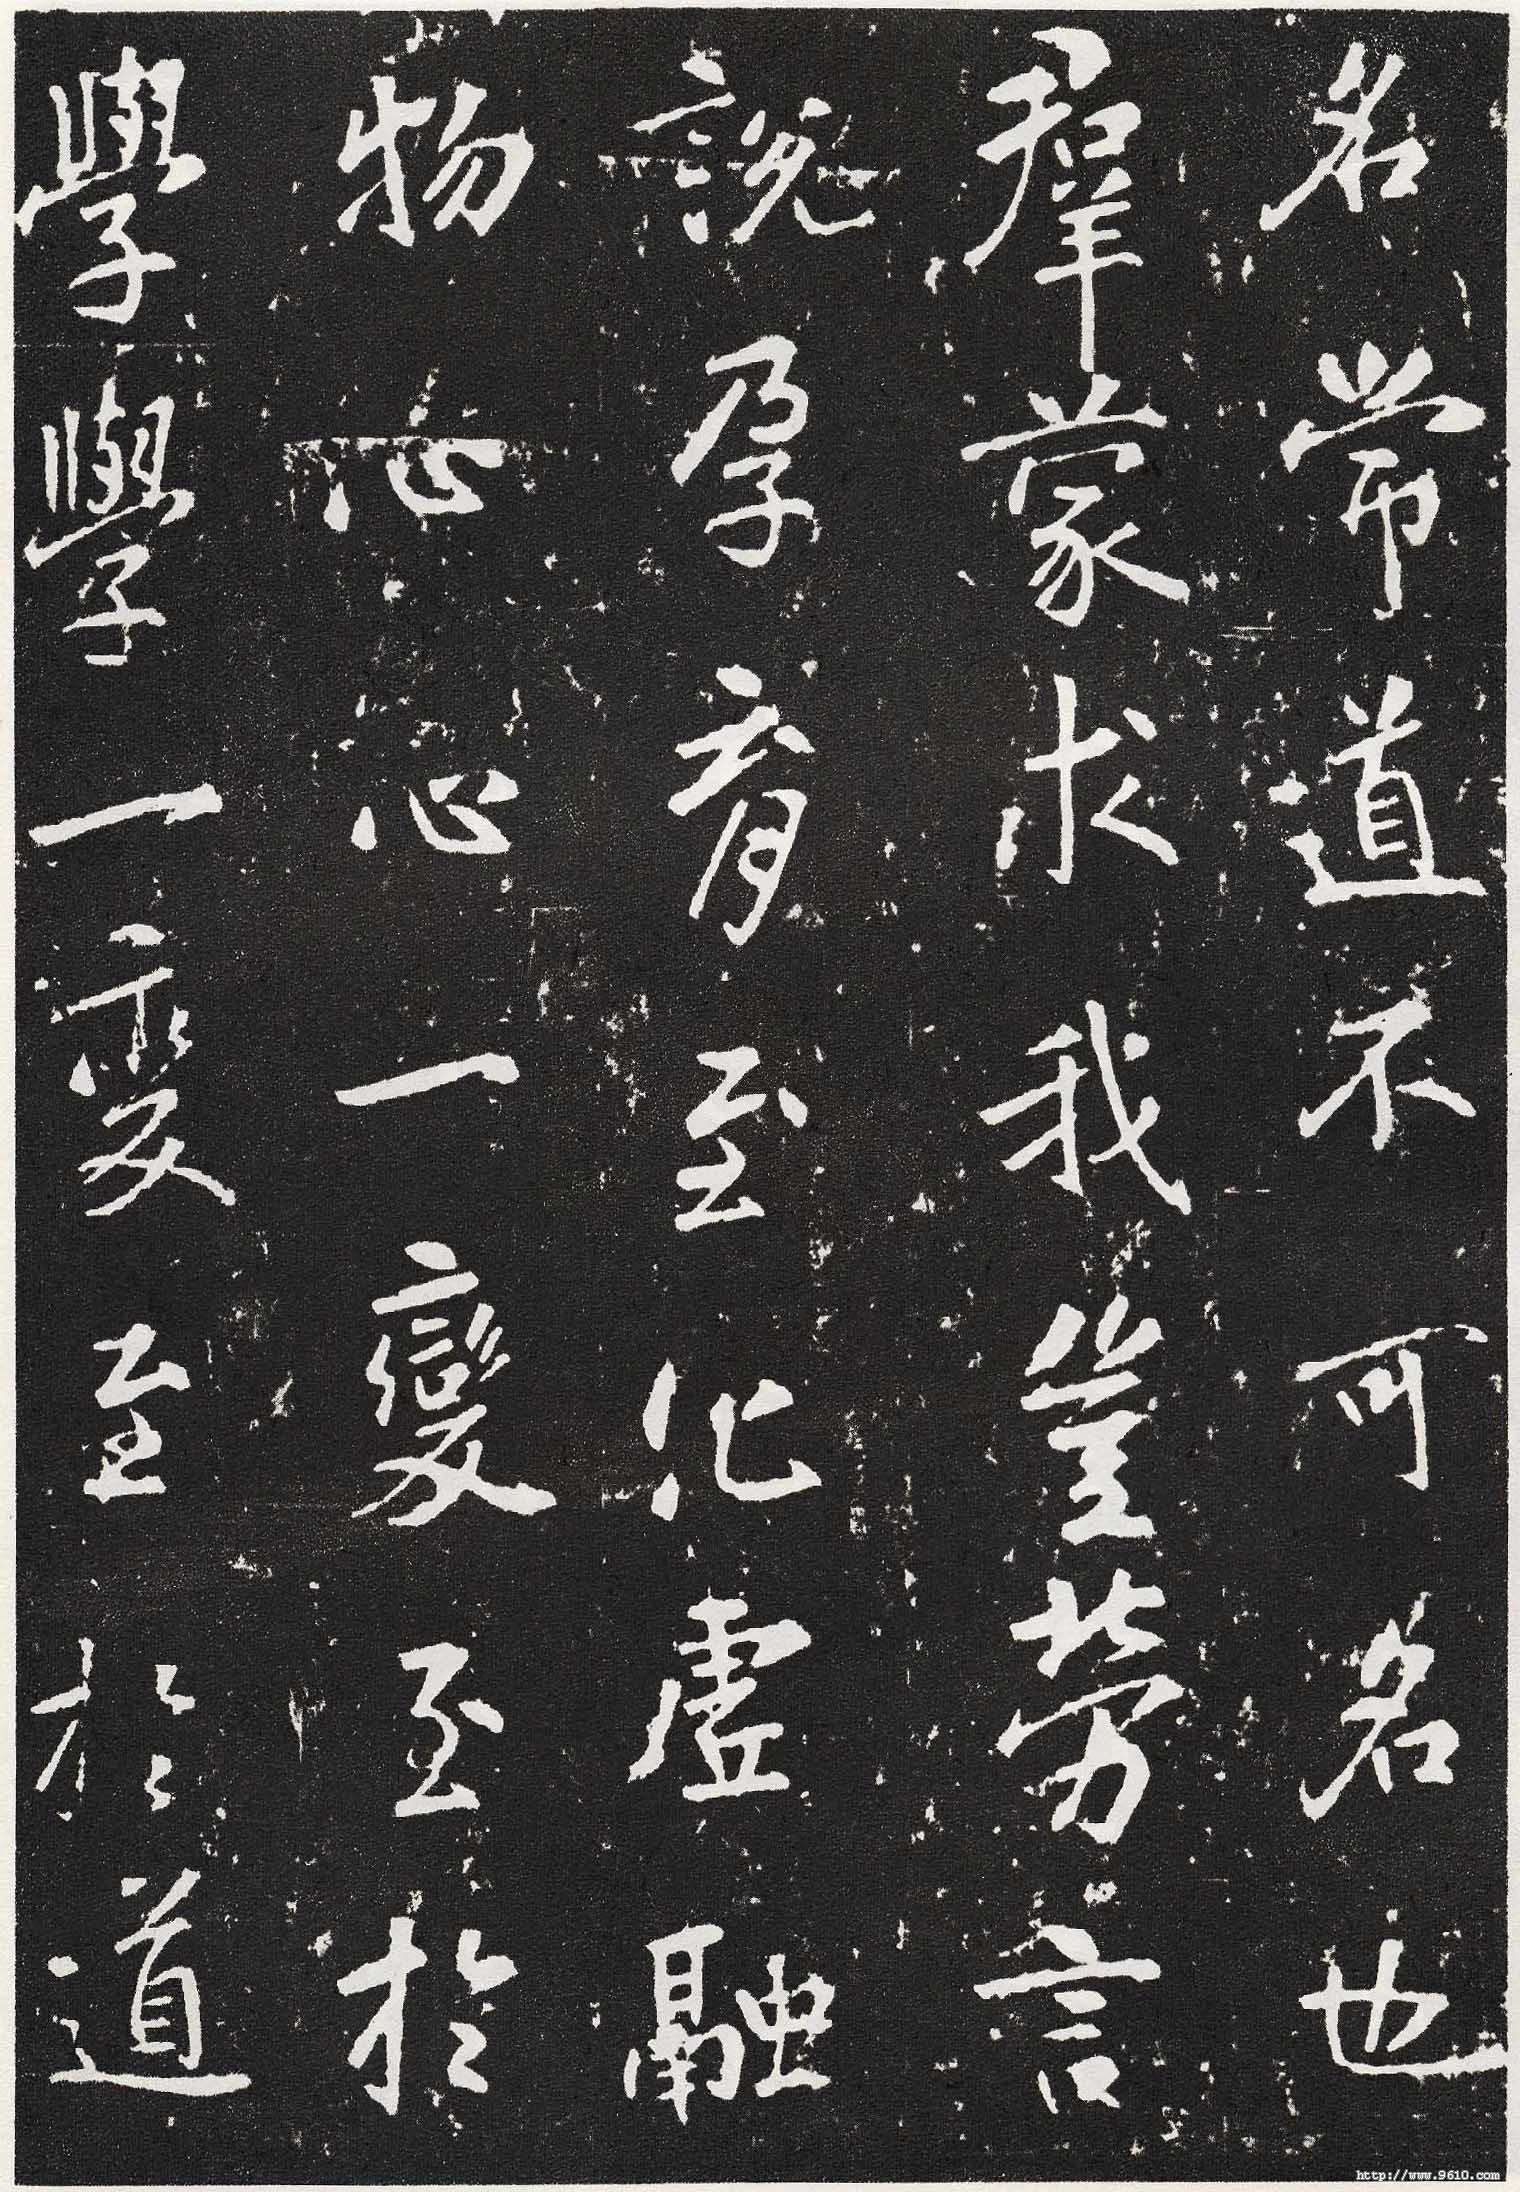 名常道不可名名也
羣蒙求我豈勞言
說孕育至化虛融
物心心一變至於
學學一變至於道
http://www.9610.com